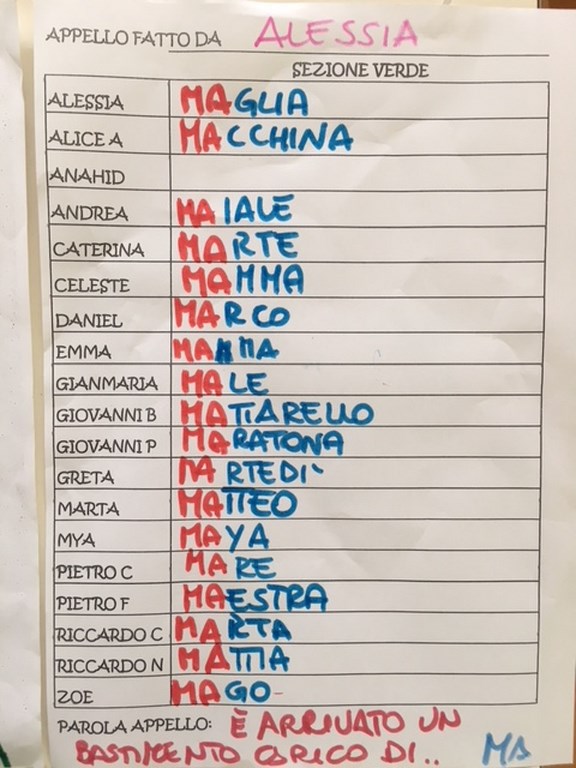 APPELLO FATTO DA ALESSIA
SEZIONE VERDE
ALESSIA MAGLIA
ALICE A MACCHINA
ANAHID
ANDREA MAIALE
CATERINA MARTE
CELESTE MAMMA
DANIEL MARCO
EMMA
GIANMARIA MALE
GIOVANNI B MATTARELLO
GIOVANNI P MARATONA
GRETA MARTEDI`
MARTA MATTEO
MYA MAYA
PIETRO C MARE
PIETRO F MAESTRA
RICCARDO C MARTA
RICCARDO N MATTIA
ZOE MAGO
PAROLA APPELLO: È ARRIVATO UN
BASTIMENTO CARICO DI.. MA